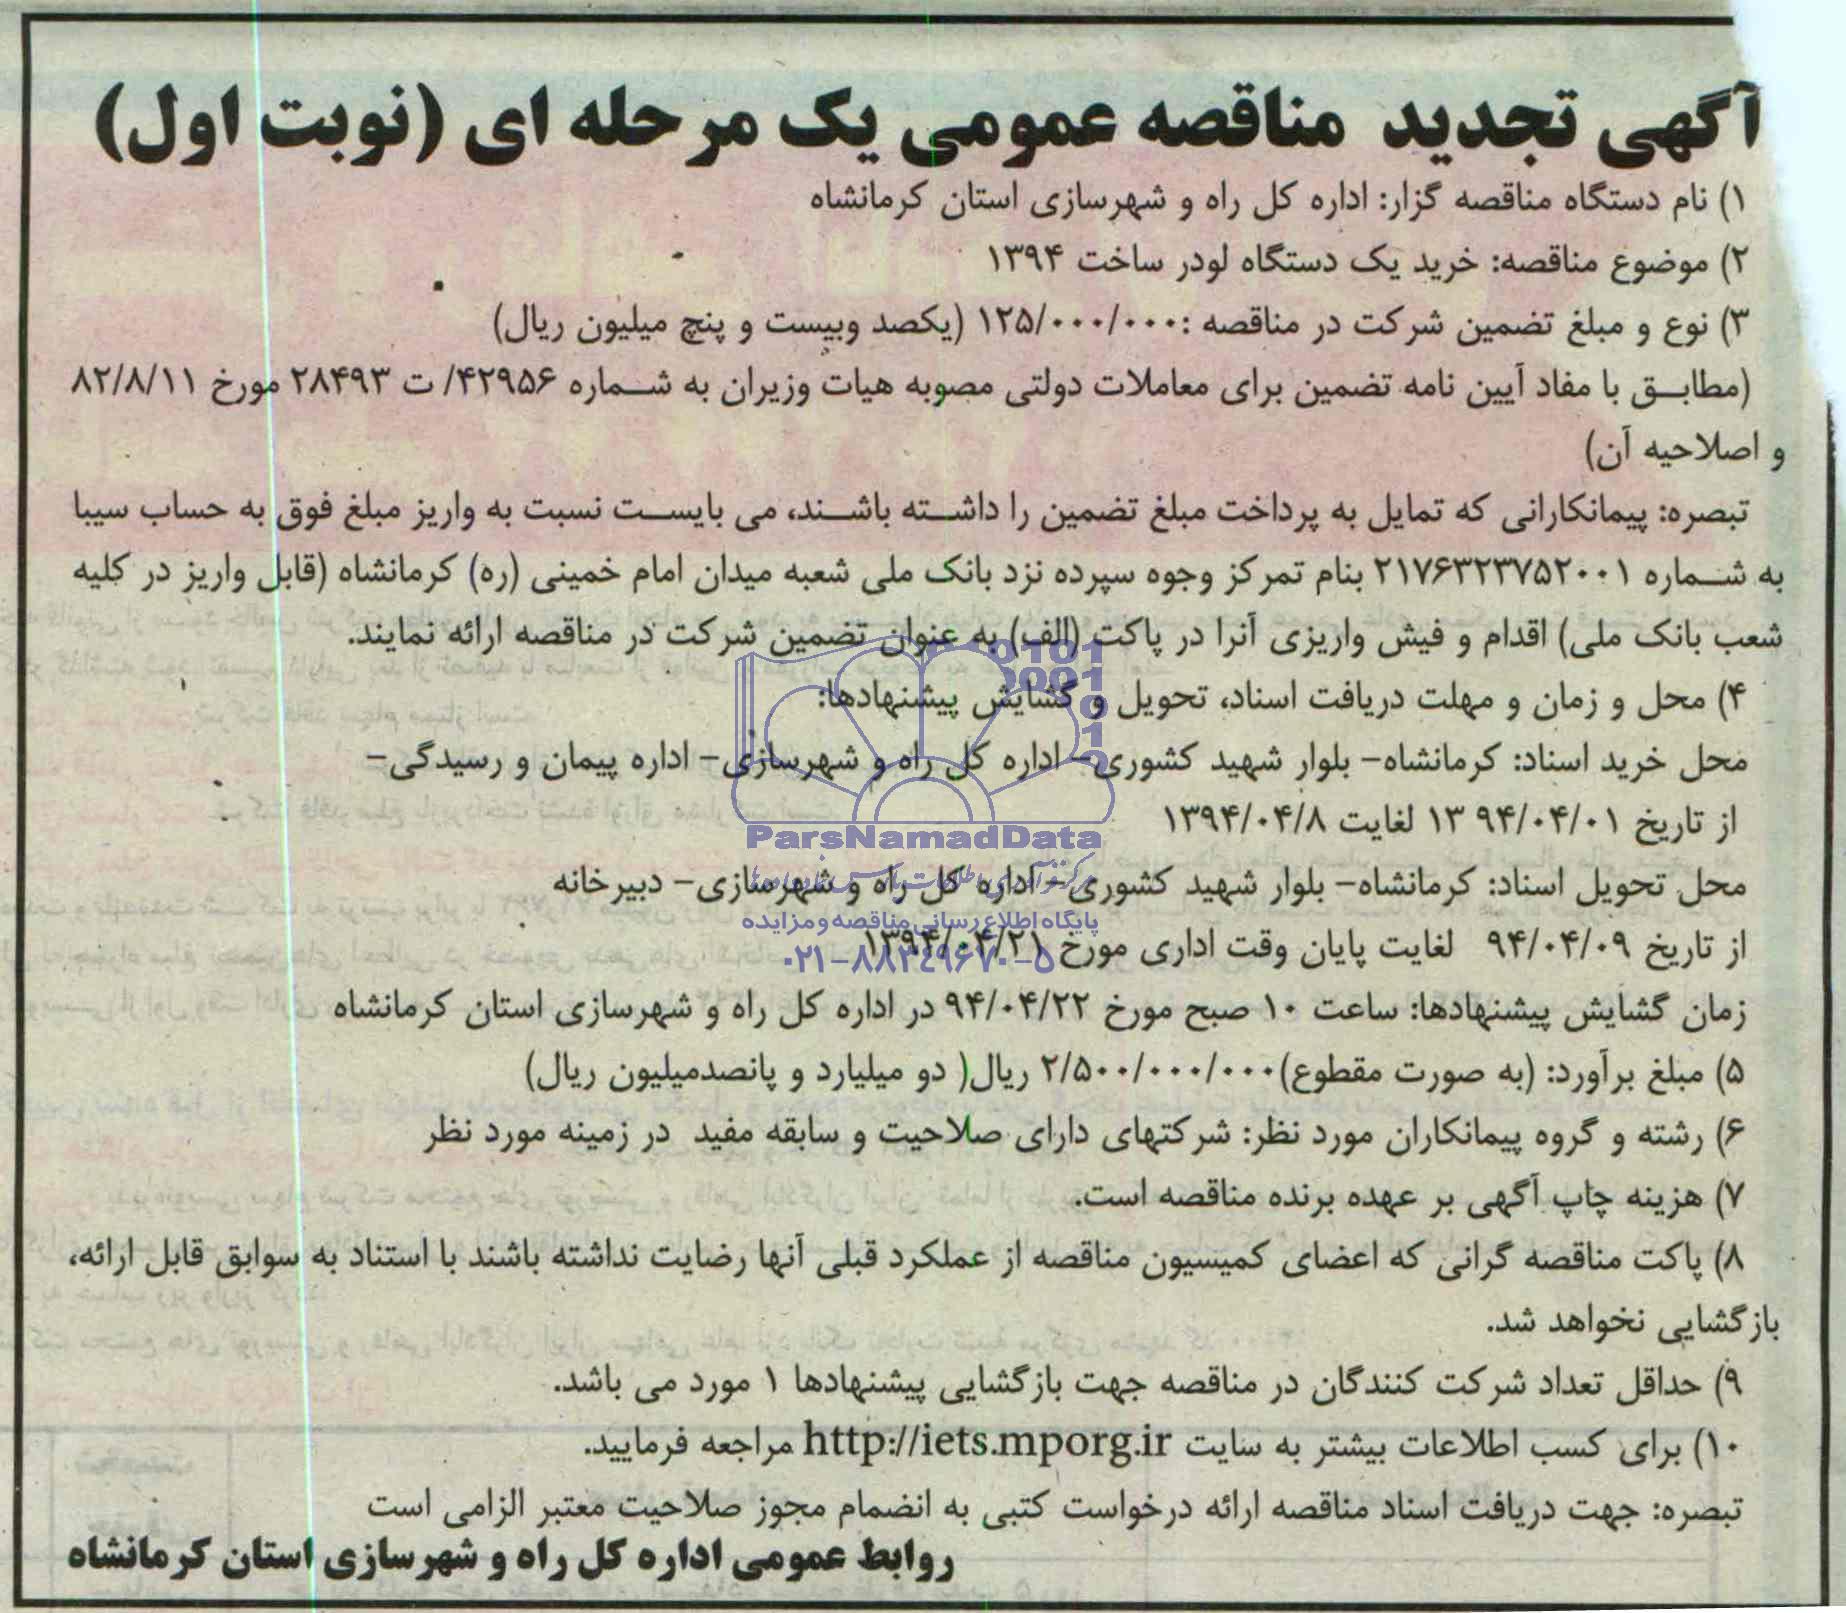 آگهی تجدید مناقصه عمومی یک مرحله ای (نوبت اول)
۱) نام دستگاه مناقصه گزار: اداره کل راه و شهرسازی استان کرمانشاه
۲) موضوع مناقصه: خرید یک دستگاه لودر ساخت ۱۳۹۴
۳) نوع و مبلغ تضمین شرکت در مناقصه :۱۲۵/۰۰۰/۰۰۰ (یکصد وبیست و پنج میلیون ریال)
(مطابق با مفاد آیین نامه تضمین برای معاملات دولتی مصوبه هیات وزیران به شماره ۴۲۹۵۶/ ت ۲۸۴۹۳ مورخ ۸۲/۸/۱۱
و اصلاحیه آن)
تبصره: پیمانکارانی که تمایل به پرداخت مبلغ تضمین را داشته باشند، می بایست نسبت به واریز مبلغ فوق به حساب سیبا
به شماره ۲۱۷۶۳۲۳۷۵۲۰۰۱ بنام تمرکز وجوه سپرده نزد بانک ملی شعبه میدان امام خمینی (ره) کرمانشاه (قابل واریز در کلیه
شعب بانک ملی) اقدام و فیش واریزی آنرا در پاکت (الف) به عنوان تضمین شرکت در مناقصه ارائه نمایند.
۴) محل و زمان و مهلت دریافت اسناد، تحویل و گشایش پیشنهادها:
محل خرید اسناد: کرمانشاه- بلوار شهید کشوری- اداره کل راه و شهرسازی- اداره پیمان و رسیدگی-
از تاریخ ۹۴/۰۴/۰۱ ۱۳ لغایت ۱۳۹۴/۰۴/۸
ParsNamadData
محل تحویل اسناد: کرمانشاه- بلوار شهید کشوری- اداره کل راه و شهرسازی- دبیرخانه
پایگاه اطلاع رسانی مناقصه و مزایده
از تاریخ ۹۴/۰۴/۰۹ لغایت پایان وقت اداری مورخ ۱۳۹۴/۰۴/۲۱
۰۲۱-۸۸۳۴۹۶۷۰-۵
زمان گشایش پیشنهادها: ساعت ۱۰ صبح مورخ ۹۴/۰۴/۲۲ در اداره کل راه و شهرسازی استان کرمانشاه
۵) مبلغ برآورد: (به صورت مقطوع)۲/۵۰۰/۰۰۰/۰۰۰ ریال( دو میلیارد و پانصدمیلیون ریال)
۶) رشته و گروه پیمانکاران مورد نظر: شرکتهای دارای صلاحیت و سابقه مفید در زمینه مورد نظر
۷) هزینه چاپ آگهی بر عهده برنده مناقصه است.
۸) پاکت مناقصه گرانی که اعضای کمیسیون مناقصه از عملکرد قبلی آنها رضایت نداشته باشند با استناد به سوابق قابل ارائه،
بازگشایی نخواهد شد.
۹) حداقل تعداد شرکت کنندگان در مناقصه جهت بازگشایی پیشنهادها ۱ مورد می باشد.
۱۰) برای کسب اطلاعات بیشتر به سایت http://iets.mporg.ir مراجعه فرمایید.
تبصره: جهت دریافت اسناد مناقصه ارائه درخواست کتبی به انضمام مجوز صلاحیت معتبر الزامی است
روابط عمومی اداره کل راه و شهرسازی استان کرمانشاه